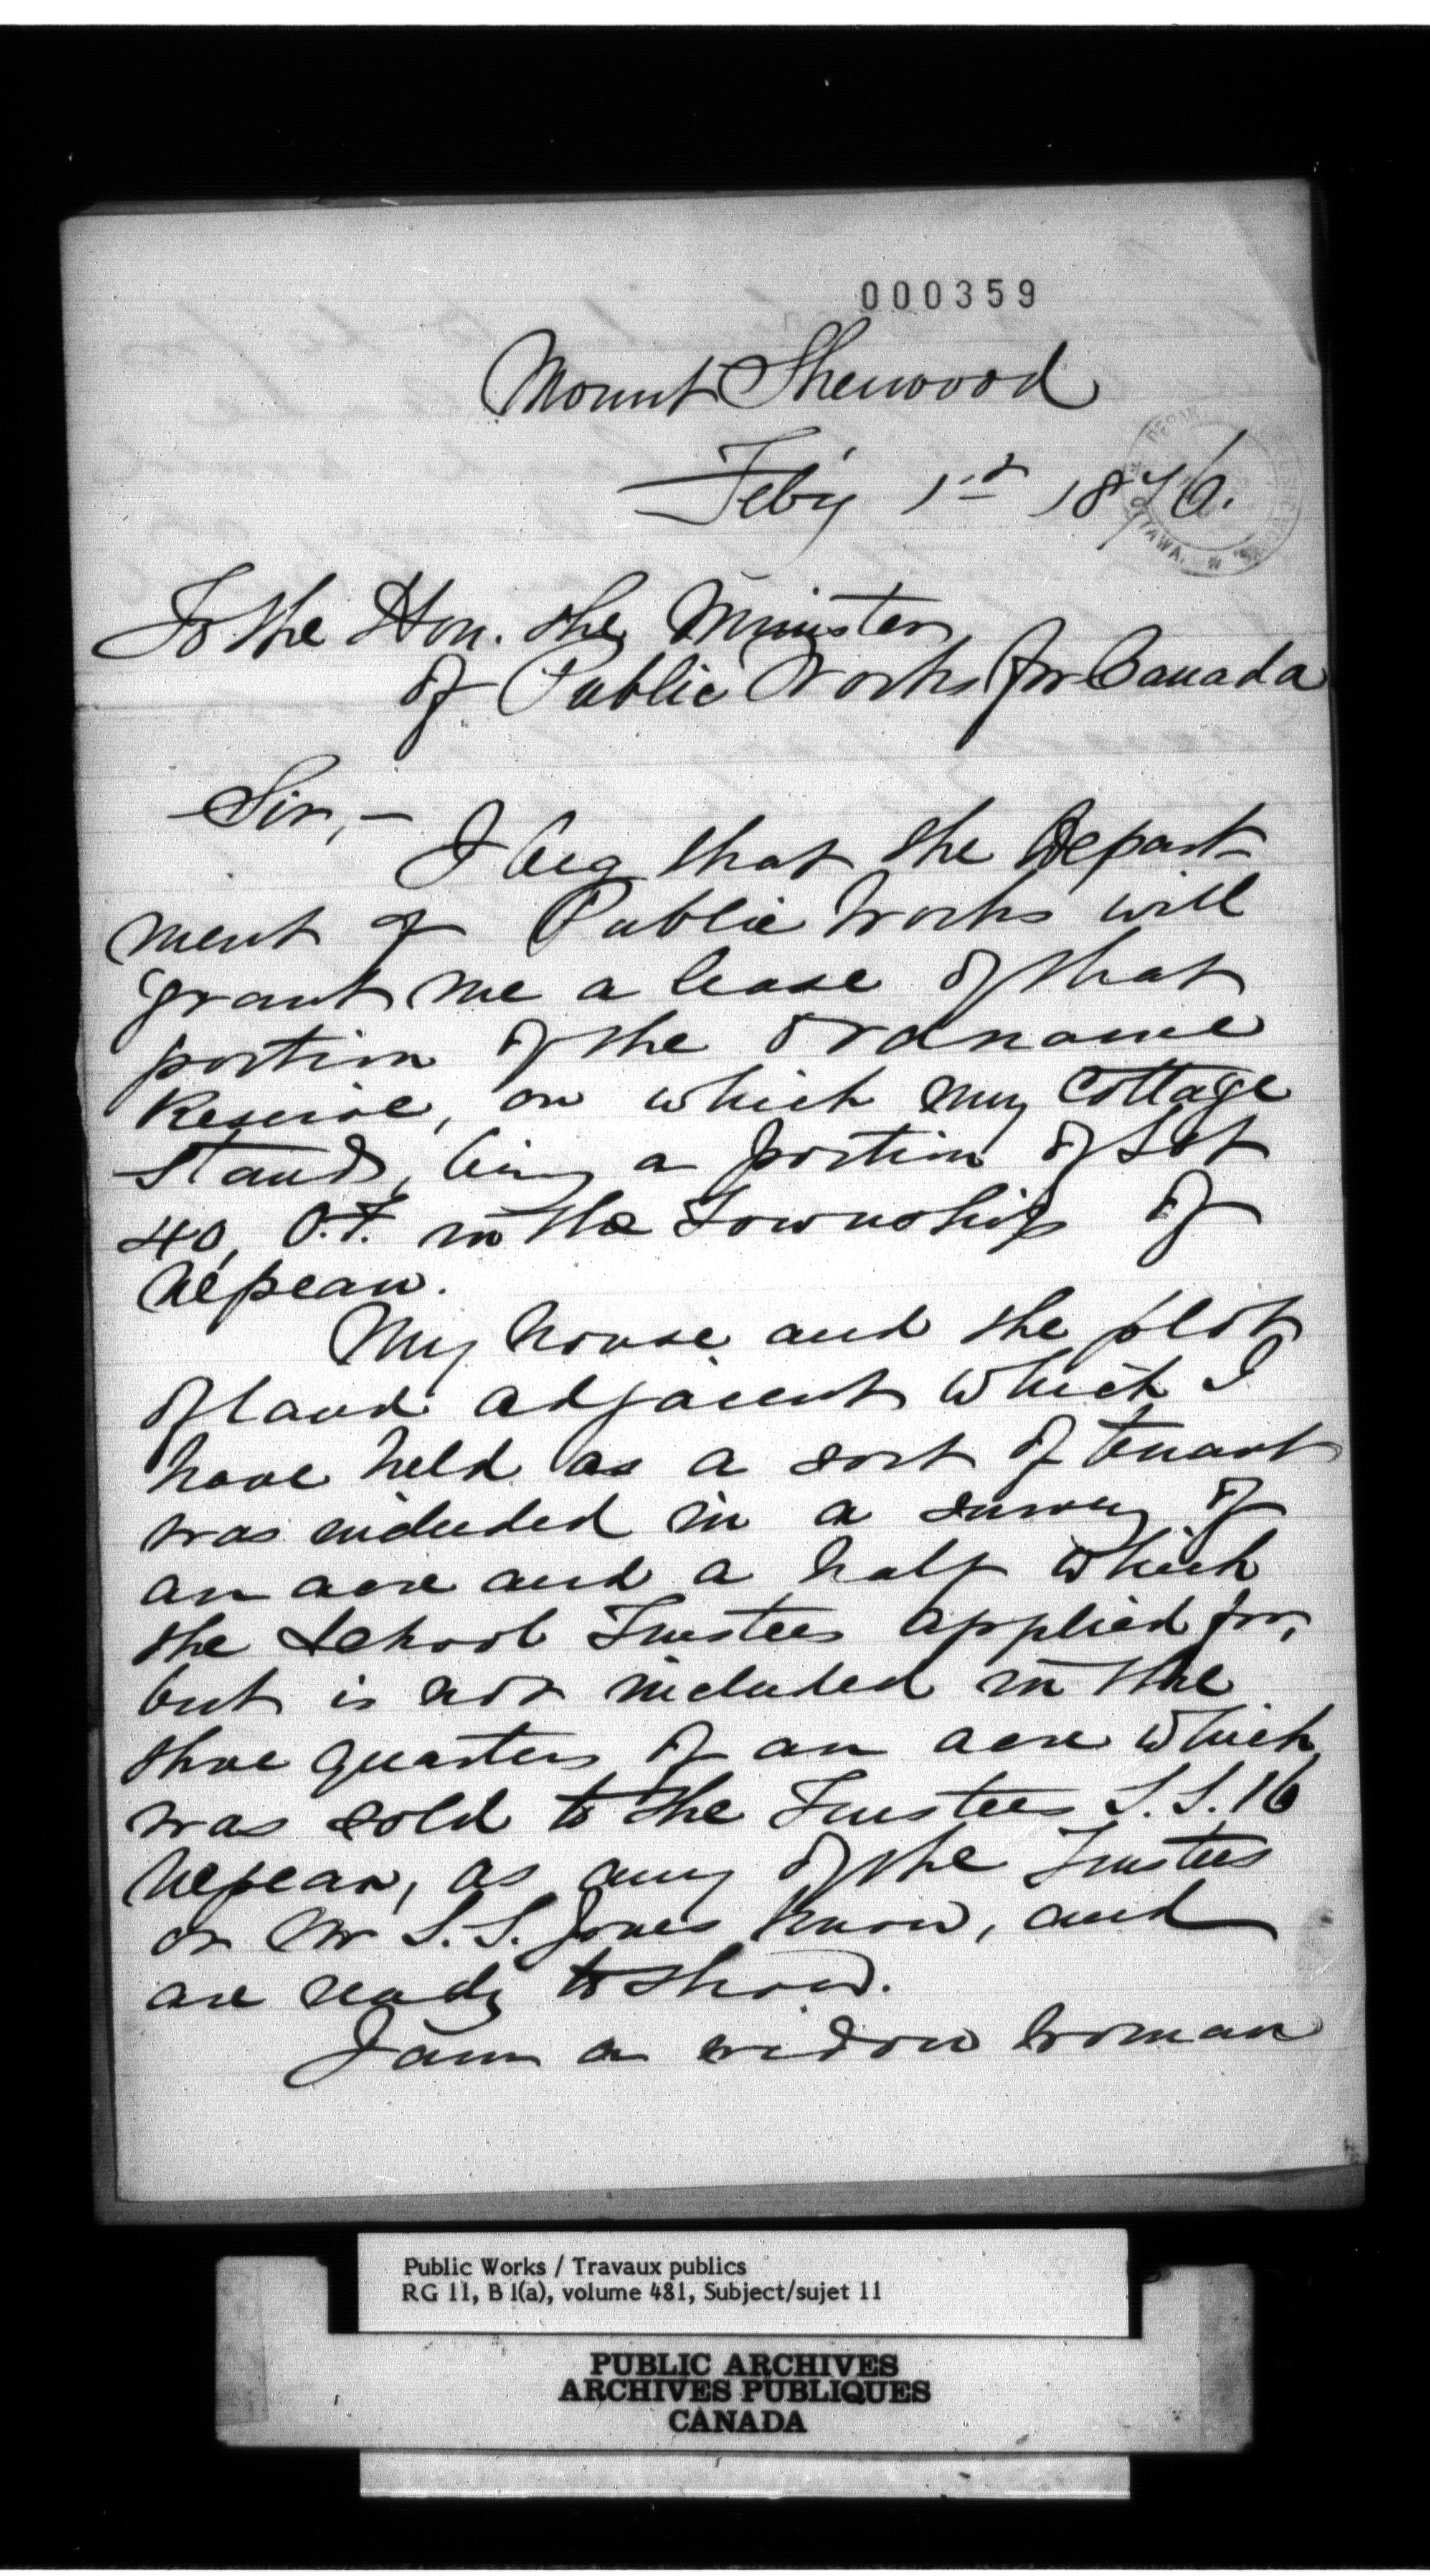 000359
Mount Sherwood
Feby 1st 1876.
To the Hon. the Minister
of Public Works for Canada
Sir,—
I beg that the Depart
ment of Public Works will
grant me a lease of that
portion of the Ordnance
Reserve, on which my Cottage
stands, being a portion of Lot
40, O.F. in the Township of
Nepean.
My house and the plot
of land adjacent which I
have held as a sort of tenant
was included in a survey of
an acre and a half which
the School Trustees applied for,
but is not included in the
three quarters of an acre which
was sold to the Trustees S.S. 16
Nepean, as any of the Trustees
or Mr S.S. Jones know, and
are ready to show.
I am a widow woman
OTTAWA.
Public Works / Travaux publics
RG 11, B 1(a), volume 481, Subject/sujet 11
PUBLIC ARCHIVES
ARCHIVES PUBLIQUES
CANADA